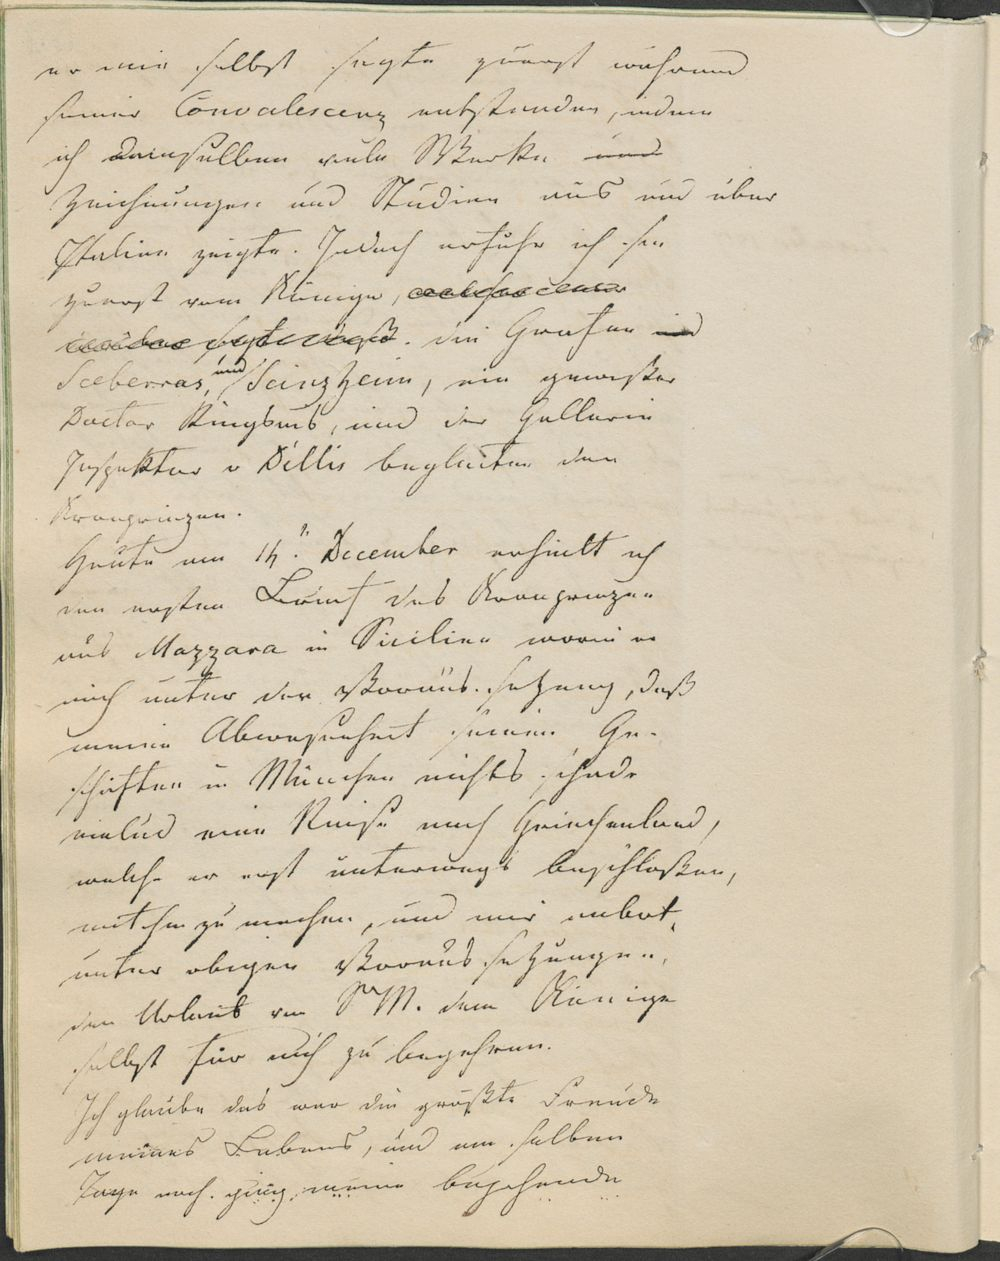 er mir selbst sagte zuerst während
seiner Convalescenz entstanden, indem
ich demselben viele Werke und
Zeichnungen und Studien aus und über
Italien zeigte. Jedoch erfuhr ich sie
zuerst vom Könige,
die Grafen und
Sceberras, und Seinzheim, ein gewisser
Doctor Ringseis, und der Gallerie
Inspektor v Dillis begleiten den
Kronprinzen.
Heute am 14t. December erhielt ich
den ersten Brief des Kronprinzen
aus Mazzara in Sicilien worin er
mich unter der Voraussetzung, daß
meine Abwesenheit seinen Ge-
schäften in München nichts schade
einlud eine Reise nach Griechenland,
welche er erst unterwegs beschloßen,
mit ihm zu machen, und mir anbot,
unter obigen Voraussetzungen,
den Urlaub von Sr M. dem Könige
selbst für mich zu begehren.
Ich glaube das war die größte Freude
meines Lebens, und am selben
Tage noch ging meine bejahende